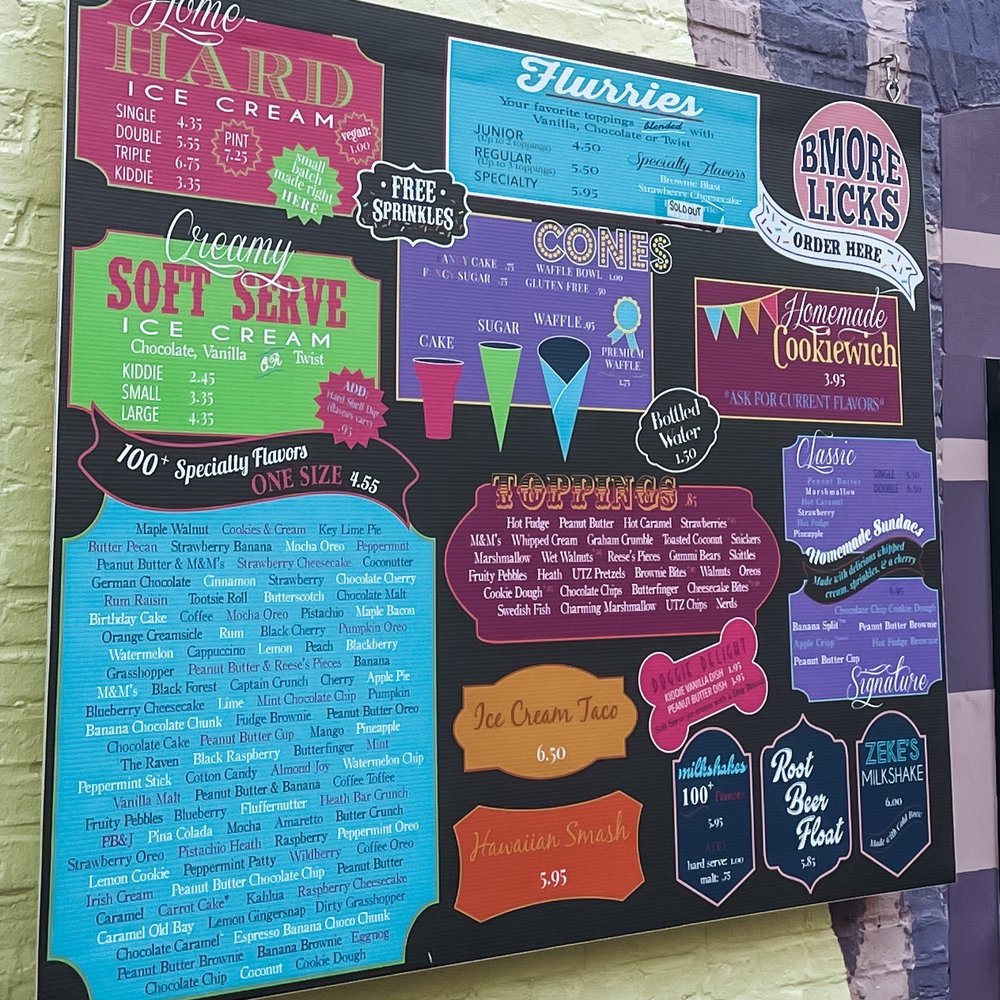 Home-
HARD
ICE CREAM
SINGLE 4.35
DOUBLE 5.55
TRIPLE 6.75
KIDDIE 3.35
PINT
7.25
vegan:
1.00
small
batch
made right
HERE
FREE
SPRINKLES
Flurries
Your favorite toppings blended with
Vanilla, Chocolate or Twist
JUNIOR 4.50
(Up to 2 toppings)
REGULAR 5.50
(Up to 3 toppings)
SPECIALTY 5.95
Specialty Flavors
Brownie Blast
Strawberry Cheesecake
SOLD OUT
BMORE
LICKS
ORDER HERE
Creamy
SOFT SERVE
ICE CREAM
Chocolate, Vanilla OR Twist
KIDDIE 2.45
SMALL 3.35
LARGE 4.35
ADD:
Hard Shell Dip
(flavors vary)
.95
CONES
CAKE .75
SUGAR .75
WAFFLE BOWL 1.00
GLUTEN FREE .50
CAKE
SUGAR
WAFFLE .95
PREMIUM
WAFFLE
1.75
Homemade
Cookiewich
3.95
*ASK FOR CURRENT FLAVORS*
Bottled
Water
1.50
100+ Specialty Flavors
ONE SIZE 4.55
Maple Walnut Cookies & Cream Key Lime Pie
Butter Pecan Strawberry Banana Mocha Oreo Peppermint
Peanut Butter & M&M's Strawberry Cheesecake Coconutter
German Chocolate Cinnamon Strawberry Chocolate Cherry
Rum Raisin Tootsie Roll Butterscotch Chocolate Malt
Birthday Cake Coffee Mocha Oreo Pistachio Maple Bacon
Orange Creamsicle Rum Black Cherry Pumpkin Oreo
Watermelon Cappuccino Lemon Peach Blackberry
Grasshopper Peanut Butter & Reese's Pieces Banana
M&M's Black Forest Captain Crunch Cherry Apple Pie
Blueberry Cheesecake Lime Mint Chocolate Chip Pumpkin
Banana Chocolate Chunk Fudge Brownie Peanut Butter Oreo
Chocolate Cake Peanut Butter Cup Mango Pineapple
The Raven Black Raspberry Butterfinger Mint
Peppermint Stick Cotton Candy Almond Joy Watermelon Chip
Vanilla Malt Peanut Butter & Banana Coffee Toffee
Fruity Pebbles Blueberry Fluffernutter Heath Bar Crunch
PB&J Pina Colada Mocha Amaretto Butter Crunch
Strawberry Oreo Pistachio Heath Raspberry Peppermint Oreo
Lemon Cookie Peppermint Patty Wildberry Coffee Oreo
Irish Cream Peanut Butter Chocolate Chip Peanut Butter
Caramel Carrot Cake* Kahlua Raspberry Cheesecake
Caramel Old Bay Lemon Gingersnap Dirty Grasshopper
Chocolate Caramel Espresso Banana Choco Chunk
Peanut Butter Brownie Banana Brownie Eggnog
Chocolate Chip Coconut Cookie Dough
TOPPINGS .85
Hot Fudge Peanut Butter Hot Caramel Strawberries
M&M's Whipped Cream Graham Crumble Toasted Coconut Snickers
Marshmallow Wet Walnuts Reese's Pieces Gummi Bears Skittles
Fruity Pebbles Heath UTZ Pretzels Brownie Bites Walnuts Oreos
Cookie Dough Chocolate Chips Butterfinger Cheesecake Bites
Swedish Fish Charming Marshmallow UTZ Chips Nerds
Classic
SINGLE
DOUBLE
Peanut Butter
Marshmallow
Hot Caramel
Strawberry
Hot Fudge
Pineapple
Homemade Sundaes
Made with delicious whipped
cream, sprinkles, & a cherry
Chocolate Chip Cookie Dough
Banana Split Peanut Butter Brownie
Apple Crisp Hot Fudge Brownie
Peanut Butter Cup
Signature
DOGGIE DELIGHT
KIDDIE VANILLA DISH 1.95
PEANUT BUTTER DISH 1.95
Ice Cream Taco
6.50
Hawaiian Smash
5.95
milkshakes
100+ Flavors
5.95
hard serve: 1.00
malt: .75
Root
Beer
Float
5.85
ZEKE'S
MILKSHAKE
6.00
Made with Cold Brew